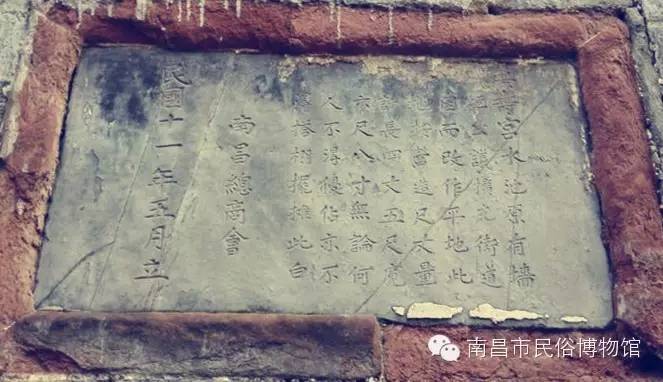 萬壽宮水池原有墻
公議擴充街道
因而改作平地此
地按營造尺丈量
長四丈五尺寬
尺八寸無論何
人不得侵佔亦不
搭棚擺攤此白
南昌總商會
民國十一年五月立
南昌市民俗博物馆